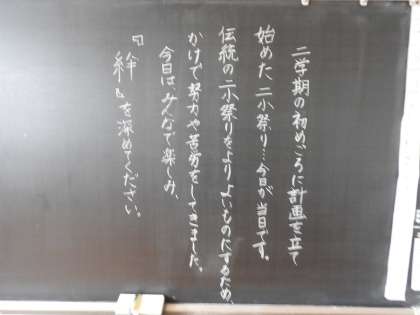 二学期の初めごろに計画を立て
始めた二小祭り…今日が当日です。
伝統の二小祭りをよりよいものにするため、
かけで努力や苦労をしてきました。
今日はみんなで楽しみ、
『絆』を深めてください。